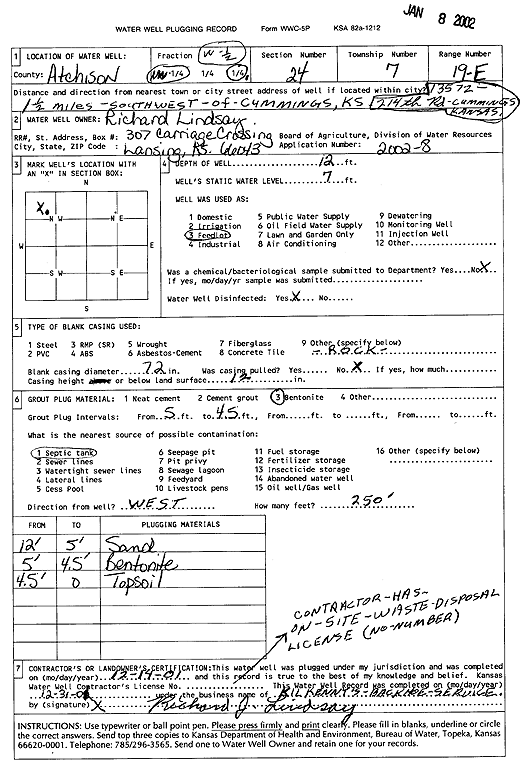 JAN 8 2002
WATER WELL PLUGGING RECORD Form WWC-5P KSA 82a-1212
1 LOCATION OF WATER WELL: Fraction W-½ Section Number Township Number Range Number
County: Atchison NW-1/4 1/4 1/4 24 7 19-E
Distance and direction from nearest town or city street address of well if located within city? 13572-
1½ MILES-SOUTHWEST-OF-CUMMINGS, KS 214th Rd-CUMMINGS
KANSAS.
2 WATER WELL OWNER: Richard Lindsay.
RR#, St. Address, Box #: 307 Carriage Crossing Board of Agriculture, Division of Water Resources
City, State, ZIP Code : Lansing, KS. 66043 Application Number: 2002-8
3 MARK WELL'S LOCATION WITH AN "X" IN SECTION BOX:
N
X
N W N E
W E
S W S E
S
4 DEPTH OF WELL 12 ft.
WELL'S STATIC WATER LEVEL 7 ft.
WELL WAS USED AS:
1 Domestic 5 Public Water Supply 9 Dewatering
2 Irrigation 6 Oil Field Water Supply 10 Monitoring Well
3 Feedlot 7 Lawn and Garden Only 11 Injection Well
4 Industrial 8 Air Conditioning 12 Other
Was a chemical/bacteriological sample submitted to Department? Yes.... No X
If yes, mo/day/yr sample was submitted
Water Well Disinfected: Yes X No......
5 TYPE OF BLANK CASING USED:
1 Steel 3 RMP (SR) 5 Wrought 7 Fiberglass 9 Other (specify below)
2 PVC 4 ABS 6 Asbestos-Cement 8 Concrete Tile -ROCK-
Blank casing diameter 72 in. Was casing pulled? Yes..... No X If yes, how much
Casing height above or below land surface 12 in.
6 GROUT PLUG MATERIAL: 1 Neat cement 2 Cement grout 3 Bentonite 4 Other
Grout Plug Intervals: From 5 ft. to 4.5 ft., From......ft. to ......ft., From...... to......ft.
What is the nearest source of possible contamination:
1 Septic tank 6 Seepage pit 11 Fuel storage 16 Other (specify below)
2 Sewer lines 7 Pit privy 12 Fertilizer storage
3 Watertight sewer lines 8 Sewage lagoon 13 Insecticide storage
4 Lateral lines 9 Feedyard 14 Abandoned water well
5 Cess Pool 10 Livestock pens 15 Oil well/Gas well
Direction from well? WEST How many feet? 250'
FROM TO PLUGGING MATERIALS
12' 5' Sand
5' 4.5' Bentonite
4.5' 0 Topsoil
CONTRACTOR-HAS-
ON-SITE-WASTE-DISPOSAL
LICENSE (NO-NUMBER)
7 CONTRACTOR'S OR LANDOWNER'S CERTIFICATION: This water well was plugged under my jurisdiction and was completed
on (mo/day/year) 12-19-01 and this record is true to the best of my knowledge and belief. Kansas
Water Well Contractor's License No. This Water Well Record was completed on (mo/day/year)
12-31-01 under the business name of BACKHOE-SERVICE.
by (signature) X Richard J. Lindsay
INSTRUCTIONS: Use typewriter or ball point pen. Please press firmly and print clearly. Please fill in blanks, underline or circle
the correct answers. Send top three copies to Kansas Department of Health and Environment, Bureau of Water, Topeka, Kansas
66620-0001. Telephone: 785/296-3565. Send one to Water Well Owner and retain one for your records.